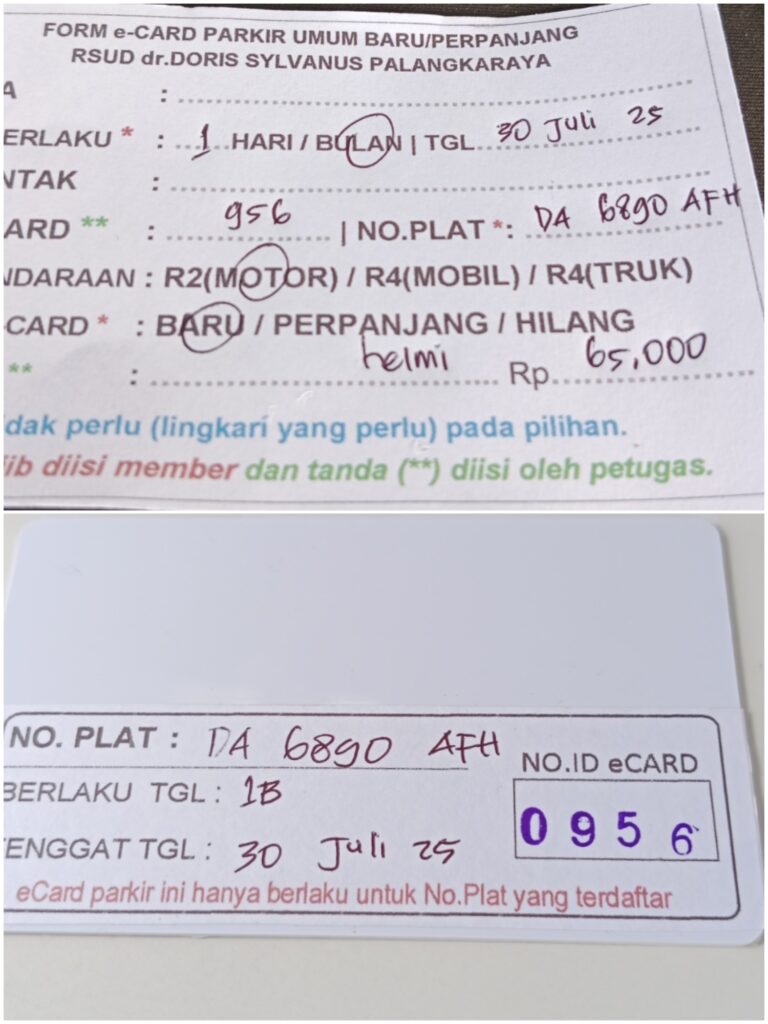 FORM e-CARD PARKIR UMUM BARU/PERPANJANG
RSUD dr.DORIS SYLVANUS PALANGKARAYA
A : 
ERLAKU * : 1 HARI / BULAN | TGL 30 Juli 25
NTAK : 
ARD ** : 956 | NO.PLAT *: DA 6890 AFH
NDARAAN : R2(MOTOR) / R4(MOBIL) / R4(TRUK)
-CARD * : BARU / PERPANJANG / HILANG
** : helmi Rp. 65,000
dak perlu (lingkari yang perlu) pada pilihan.
jib diisi member dan tanda (**) diisi oleh petugas.
NO. PLAT : DA 6890 AFH
NO.ID eCARD
BERLAKU TGL : 1B
0956
TENGGAT TGL : 30 Juli 25
eCard parkir ini hanya berlaku untuk No.Plat yang terdaftar